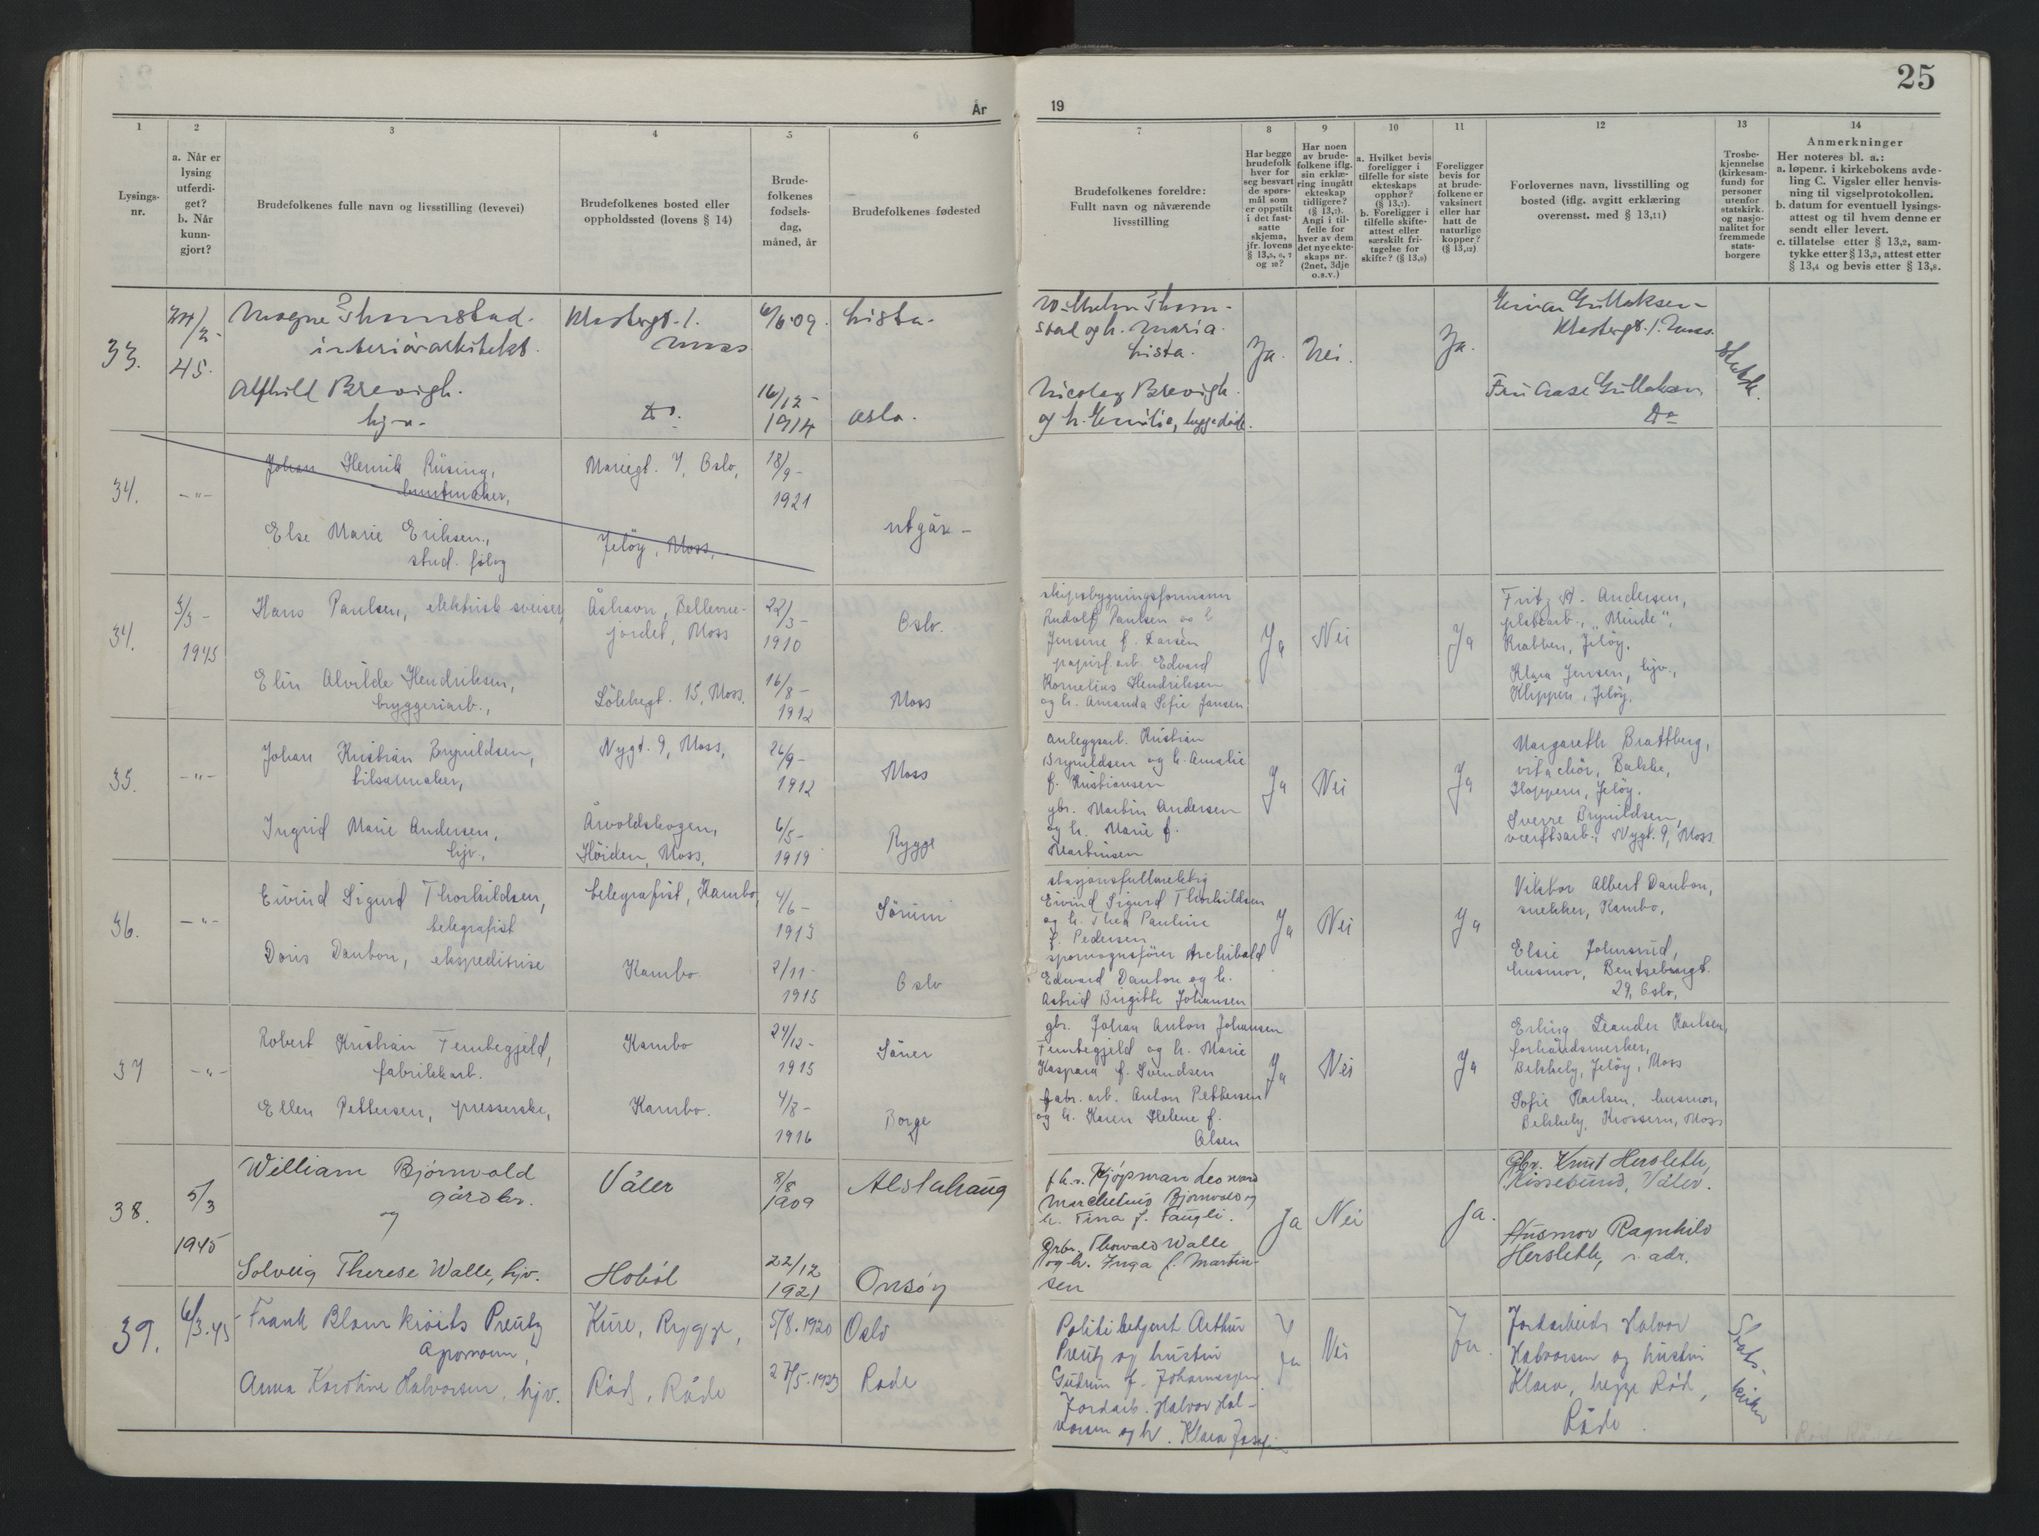 25
År
19
1
2
3
4
5
6
7
8
9
10
11
12
13
14
Lysings-
nr.
a. Når er
lysing
utferdi-
get?
b. Når
kunn-
gjort?
Brudefolkenes fulle navn og livsstilling (levevei)
Brudefolkenes bosted eller
oppholdssted (lovens § 14)
Brude-
folkenes
fødsels-
dag,
måned, år
Brudefolkenes fødested
Brudefolkenes foreldre:
Fullt navn og nåværende
livsstilling
Har begge
brudefolk
hver for
seg besvart
de spørs-
mål som
er oppstilt
i det fast-
satte
skjema,
jfr. lovens
§ 13,5, 6, 7
og 10?
Har noen
av brude-
folkene iflg.
sin erklæ-
ring inngått
ekteskap
tidligere?
(§ 13,7).
Angi i til-
felle for
hver av dem
det nye ekte-
skaps nr.
(2net, 3dje
o.s.v.)
a. Hvilket bevis
foreligger i
tilfelle for siste
ekteskaps
opphør?
(§ 13,7).
b. Foreligger i
tilfelle skifte-
attest eller
særskilt fri-
tagelse for
skifte? (§ 13,9)
Foreligger
bevis for
at brude-
folkene er
vaksinert
eller har
hatt de
naturlige
kopper?
(§ 13,12)
Forlovernes navn, livsstilling og
bosted (iflg. avgitt erklæring
overensst. med § 13,11)
Trosbe-
kjennelse
(kirkesam-
fund) for
personer
utenfor
statskirk.
og nasjo-
nalitet for
fremmede
stats-
borgere
Anmerkninger
Her noteres bl. a.:
a. løpenr. i kirkebokens avde-
ling C. Vigsler eller henvis-
ning til vigselprotokollen.
b. datum for eventuell lysings-
attest og til hvem denne er
sendt eller levert.
c. tillatelse etter § 13,2, sam-
tykke etter § 13,3, attest etter
§ 13,4 og bevis etter § 13,8.
33.
45.
Magne Thomstad.
interiørarkitekt.
Moss
6/6-09.
Lista.
Alfhild Brevigh.
hjv.
Do.
16/12-
1914
Oslo.
Wilhelm Thom-
stad og h. Maria.
Lista.
Nicolay Brevigh.
og h. Emilie, begge døde.
Ja.
Nei.
Ja.
Einar Gullaksen-
Moss.
Fru Aase Gullaksen
Do
34.
-"-
Johan Henrik Rüsing,
buntmaker,
Mariegt. 7, Oslo,
18/9-
1921
Else Marie Eriksen,
stud. filog
Jeløy, Moss,
utgår-
34.
3/3-
1945
Hans Paulsen, elektrisk sveiser,
Åshavn, Bellevue-
jordet, Moss
22/3-
1910
Oslo.
Elin Alvilde Hendriksen,
bryggeriarb.,
15, Moss.
16/8-
1912
Moss
skipsbygningsformann
Rudolf Paulsen og h
Jensine f. Larsen
papirf.arb. Edvard
Kornelius Hendriksen
og h. Amanda Sofie Jansen
Ja
Nei
Ja
Fritz A. Andersen,
platearb., „Minde“,
Krabben, Jeløy.
Klara Jensen, hjv.,
Kleppen, Jeløy.
35.
-"-
Johan Kristian Brynildsen,
Nygt. 9, Moss,
26/9-
1912
Moss
Ingrid Marie Andersen,
hjv.,
Årvoldskogen,
Høiden, Moss,
6/5-
1919
Rygge
anleggsarb. Kristian
Brynildsen og h. Amalie
f. Kristiansen
gbr. Martin Andersen
og h. Marie f.
Martinsen
Ja
Nei
Ja
Margareth Brattberg,
Bakke,
Jeløy.
Sverre Brynildsen,
verftsarb. Nygt. 9, Moss
36.
-"-
Eivind Sigurd Thorkildsen,
telegrafist
telegrafist, Kambo,
4/6-
1913
Sørum
Doris Danbon, ekspeditrise
Kambo
2/11-
1915
Oslo
stasjonsfullmektig
Eivind Sigurd Thorkildsen
og h. Thea Pauline
f. Pedersen
spornvognsfører Archibald
Edward Danbon og h.
Astrid Birgitte Johansen
Ja
Nei
Ja
Viktor Albert Danbon,
snekker, Kambo,
Elsie Johnsrud,
husmor, Bentsebrugt.
29, Oslo,
37
-"-
Robert Kristian Tembegjeld,
fabrikkarb.
Kambo
24/12-
1915
Såner
Ellen Pettersen, presserske,
Kambo.
4/8-
1916
Borge
gbr. Johan Anton Johansen
Tembegjeld og h. Marie
Kaspara f. Svendsen
fabr. arb. Anton Pettersen
og h. Karen Helene f.
Olsen
Ja
Nei
Ja
Erling Leander Karlsen,
forhåndsmerker,
Bekkely, Jeløy, Moss
Sofie Karlsen, husmor,
Bekkely, Krossern, Moss
38.
5/3
1945
William Bjørnvold
gårdbr.
og
Våler
8/8
1909
Alstahaug
Solveig Therese Walle, hjv.
Hobøl
22/12
1921
Onsøy
f.h.v. Kjøpmann Leonard
Marchelius Bjørnvold og
h. Tina f. Faugli.
Grbr. Thorvald Walle
og h. Inga f. Martin-
sen
Ja
Nei
Ja.
Gbr. Knut Hersleth,
Kissesund, Våler.
Husmor Ragnhild
Hersleth, s. adr.
39.
6/3.45
Frank Preutz
Kure, Rygge,
5/8.1920
Oslo
Anna Karoline Halvorsen, hjv.
Rød, Råde
27/5.1923
Råde
Politibetjent Arthur
Preutz og hustru
Gudrun f. Johannesen
Jordarb. Halvor Hal-
vorsen og h. Klara
Ja
Nei
Ja.
Jordarbeider Halvor
Halvorsen og hustru
Klara, begge Rød,
Råde.
Stats-
kirken